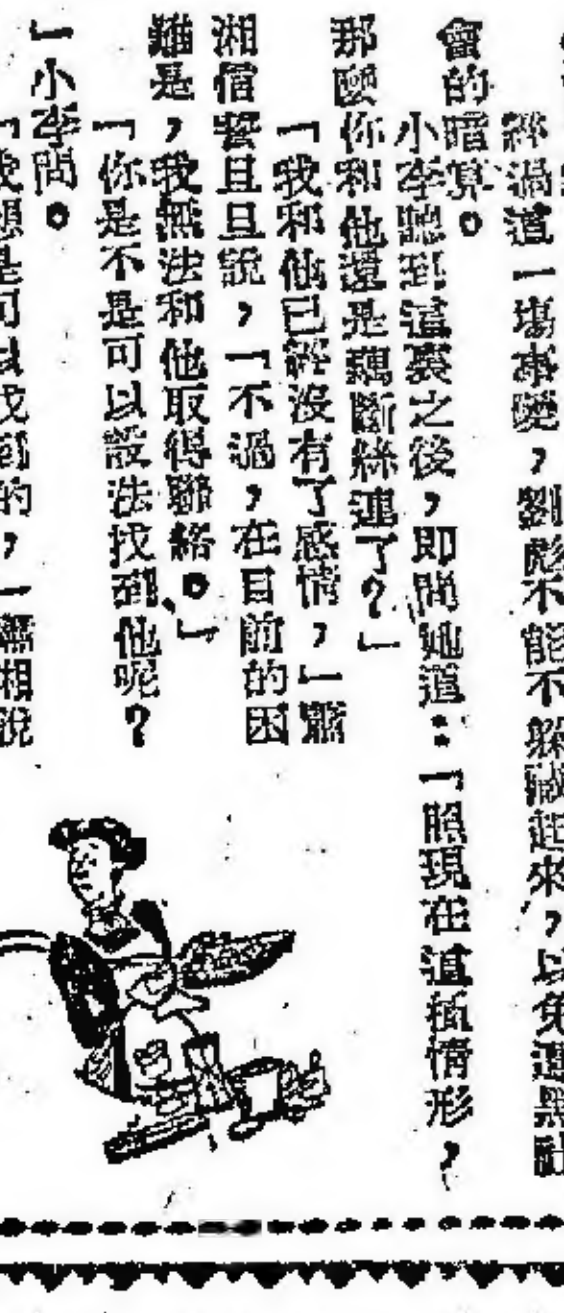 經過這一場事變，劉彪不能不躲藏起來，以免遭黑社
會的暗算。
小李聽到這裏之後，即問她道：「照現在這種情形，
那麼你和他還是藕斷絲連了？」
「我和他已經沒有了感情，」
湘信誓旦旦說，「不過，在目前的困
難是，我無法和他取得聯絡。」
「你是不是可以設法找到他呢？
」小李問。
「我想是可以找到的，」湘說